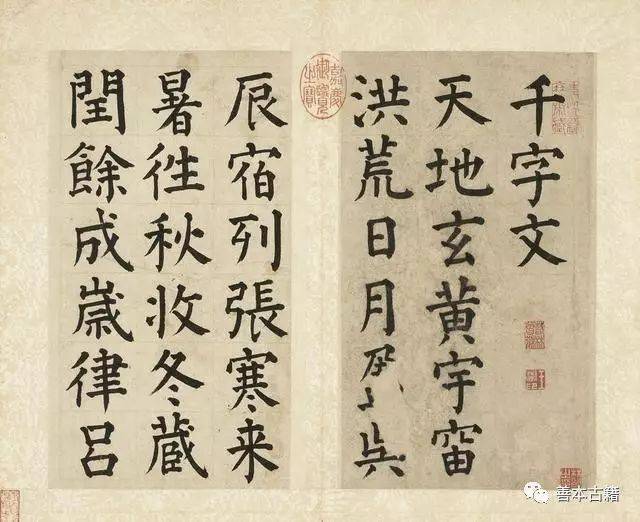 千字文
天地玄黄宇宙
洪荒日月
辰宿列張寒来
暑往秋收冬蔵
閏餘成歳律吕
嘉慶御覽之寶
善本古籍